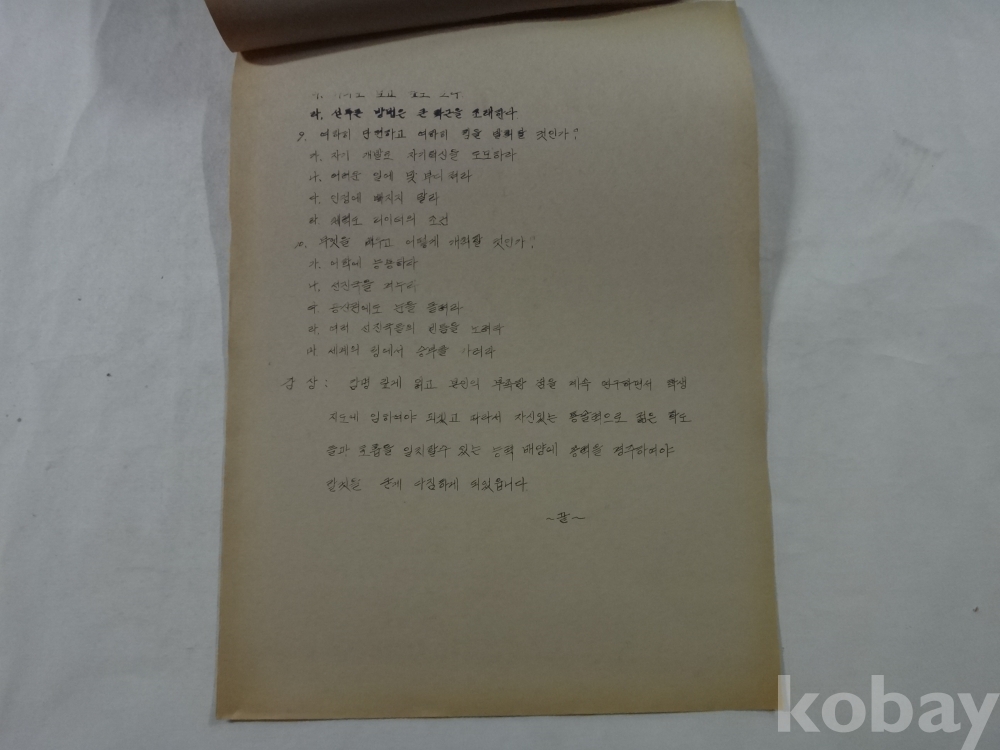 라. 선택은 방법은 큰 화근을 초래한다
9. 여하히 단련하고 여하히 힘을 발휘할 것인가?
가. 자기 개발로 자기혁신을 도모하라
나. 어려운 일에 맞부디쳐라
다. 인정에 빠지지 말라
라. 체력도 리이더의 조건
10. 무엇을 배우고 어떻게 개척할 것인가?
가. 어학에 능통하라
나. 선진국을 배우라
다. 공산권에도 눈을 돌려라
라. 여러 선진국들의 틈을 노려라
마. 세계의 장에서 승부를 가려라
감상: 감명 깊게 읽고 본인의 부족한 점을 계속 연구하면서 학생
지도에 임하여야 되겠고 따라서 자신있는 통솔력으로 젊은 학도
들과 호흡을 일치할수 있는 능력 배양에 총력을 경주하여야
할것을 굳게 다짐하게 되었읍니다.
~끝~
kobay